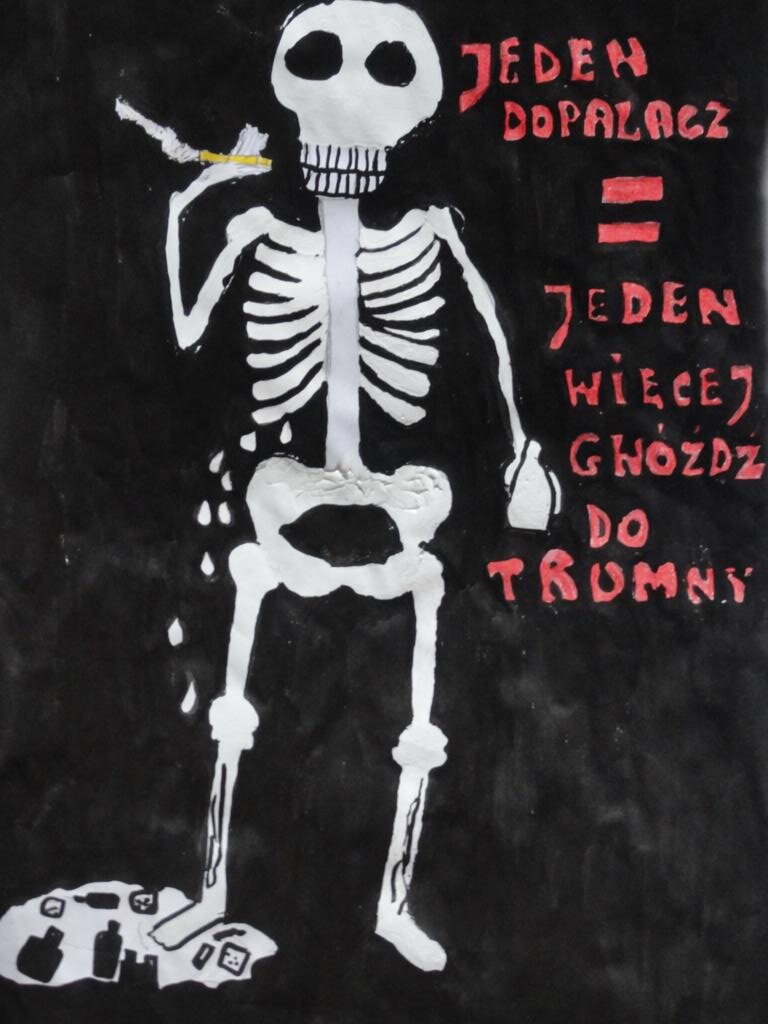 JEDEN
DOPALACZ
=
JEDEN
WIĘCEJ
GWÓŹDŹ
DO
TRUMNY